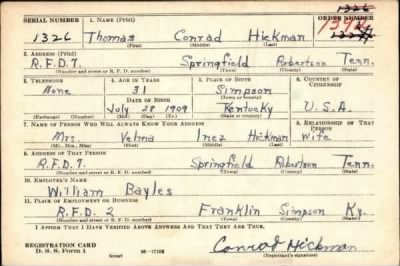 1326
SERIAL NUMBER 1. NAME (Print) ORDER NUMBER
1326 Thomas Conrad Hickman 1394
(First) (Middle) (Last)
2. ADDRESS (Print)
R.F.D.7. Springfield Robertson Tenn.
(Number and street or R. F. D. number) (Town) (County) (State)
3. TELEPHONE 4. AGE IN YEARS 5. PLACE OF BIRTH 6. COUNTRY OF CITIZENSHIP
None 31 Simpson
(Town or county)
DATE OF BIRTH
July 28 1909 Kentucky U.S.A.
(Exchange) (Number) (Mo.) (Day) (Yr.) (State or country)
7. NAME OF PERSON WHO WILL ALWAYS KNOW YOUR ADDRESS 8. RELATIONSHIP OF THAT PERSON
Mrs. Velma Inez Hickman Wife
(Mr., Mrs., Miss) (First) (Middle) (Last)
9. ADDRESS OF THAT PERSON
R.F.D.7. Springfield Robertson Tenn.
(Number and street or R. F. D. number) (Town) (County) (State)
10. EMPLOYER'S NAME
William Bayles
11. PLACE OF EMPLOYMENT OR BUSINESS
R.F.D. 2 Franklin Simpson Ky.
(Number and street or R. F. D. number) (Town) (County) (State)
I AFFIRM THAT I HAVE VERIFIED ABOVE ANSWERS AND THAT THEY ARE TRUE.
REGISTRATION CARD
D. S. S. Form 1 (over) Conrad Hickman
(Registrant's signature)